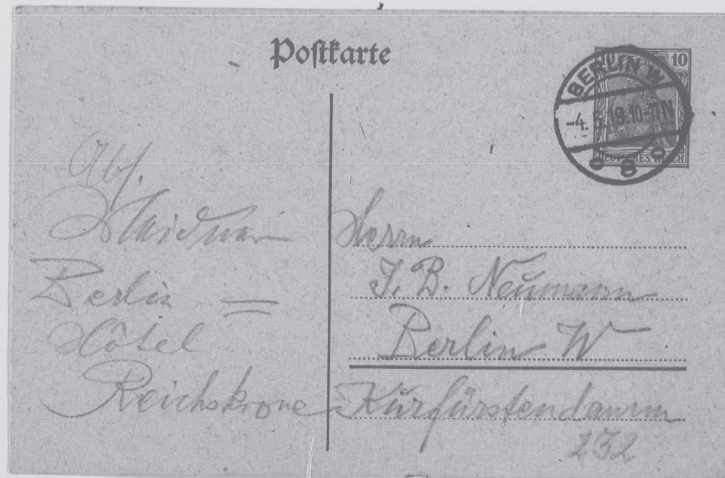 Postkarte
10
BERLIN W
-4.5.19.10-11N
8
DEUTSCHES REICH
Abs.
Berlin =
Hôtel
Reichskrone
Herrn
J. B. Neumann
Berlin W
Kurfürstendamm
232